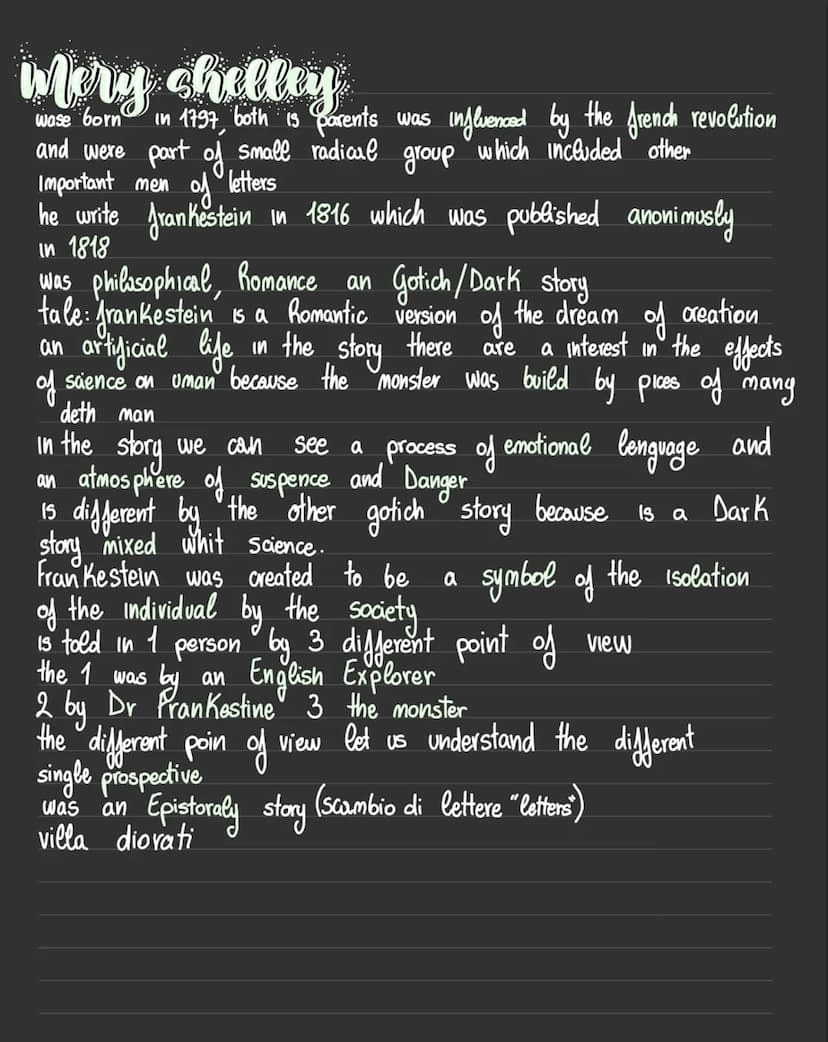 Mery shelley
wase born in 1797, both is parents was influenced by the french revolution
and were part of small radical group which included other
important men of letters
he write frankestein in 1816 which was published anonimusly
in 1818
was philosophical, Romance an Gotich/Dark story
tale: frankestein is a Romantic version of the dream of creation
an artificial life in the story there are a interest in the effects
of science on uman because the monster was build by pices of many
deth man
in the story we can see a process of emotional lenguage and
an atmosphere of suspence and Danger
is different by the other gotich story because is a Dark
story mixed whit science.
Frankestein was created to be a symbol of the isolation
of the individual by the society
is told in 1 person by 3 different point of view
the 1 was by an English Explorer
2 by Dr Frankestine 3 the monster
the different poin of view let us understand the different
single prospective
was an Epistoraly story (scambio di lettere "letters")
villa diorati